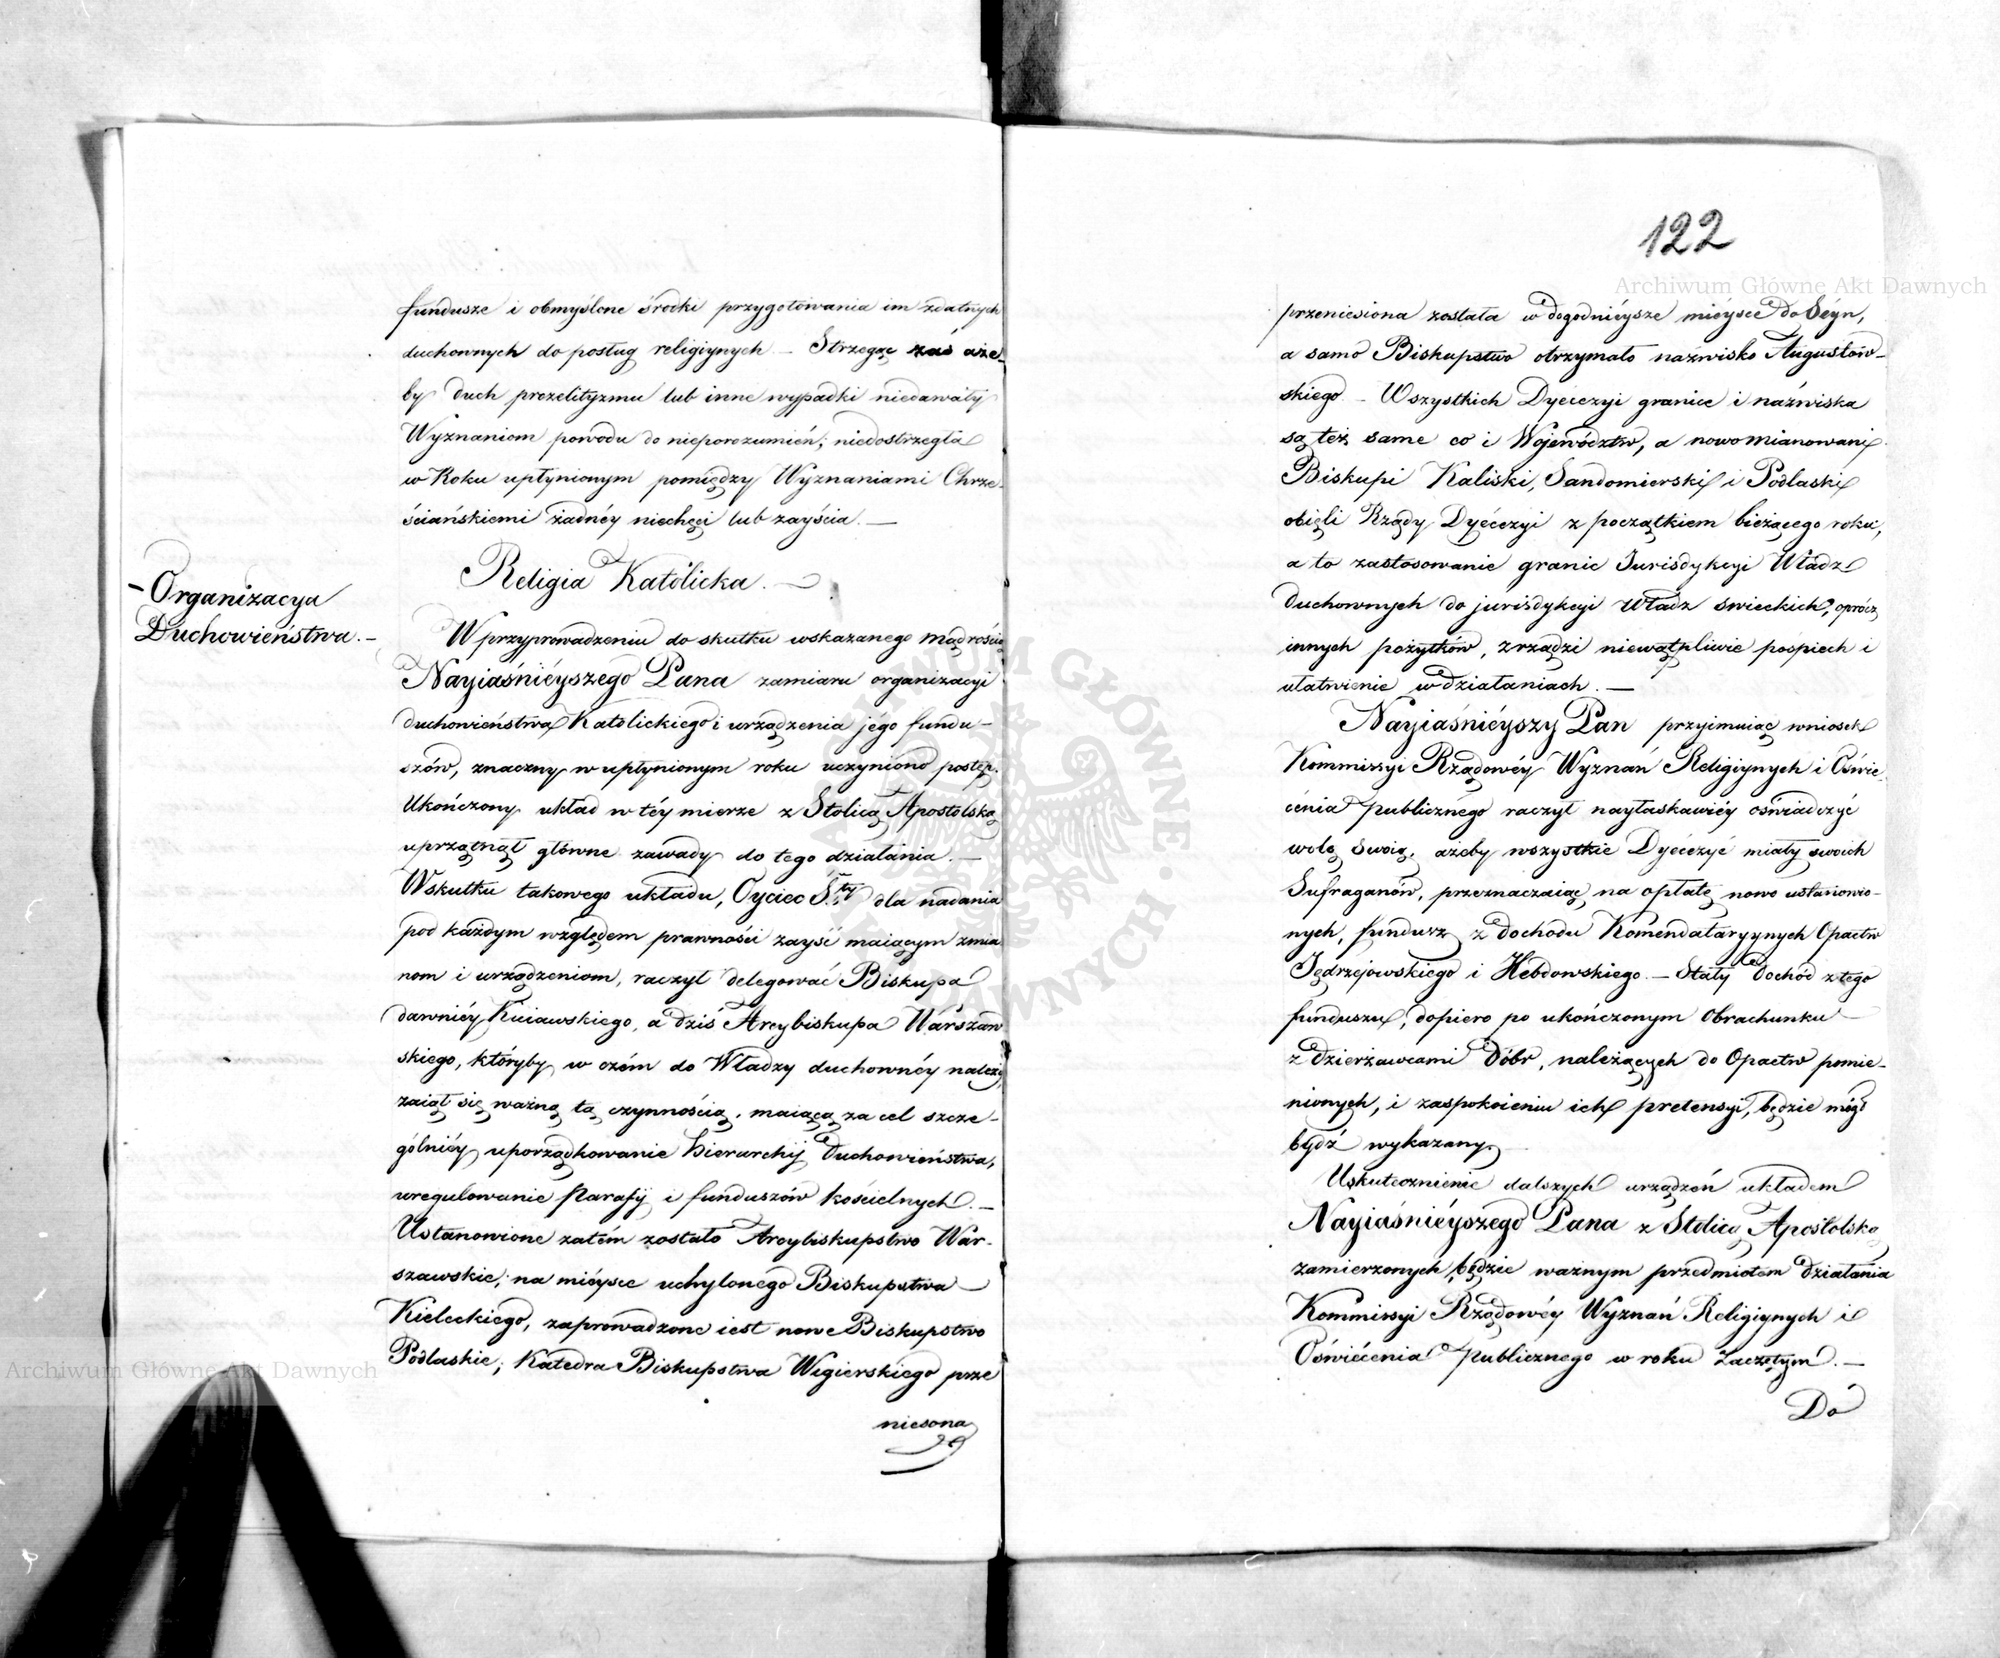 fundusze i obmyślone środki przygotowania im zdatnych
duchownych do posług religiynych — Strzegąc zaś aże-
by duch prozelityzmu lub inne wypadki niedawały
Wyznaniom powodu do nieporozumień; niedostrzegła
w Roku upłynionym pomiędzy Wyznaniami Chrze-
ściańskiemi żadnéy niechęci lub zayścia. —
Religia Katolicka. —
– Organizacya
Duchowieństwa. –
W przyprowadzeniu do skutku wskazanego mądrością
Nayiaśnieyszego Pana zamiaru organizacyi
duchowieństwa Katolickiego i urządzenia jégo fundu-
szów, znaczny w upłynionym roku uczyniono postęp.
Ukończony układ w téy mierze z Stolicą Apostolską
uprzątnął główne zawady do tego działania. —
Wskutku takowego układu, Oyciec S.ty dla nadania
pod każdym względem prawności zayść maiącym zmia
nom i urządzeniom, raczył delegować Biskupa
dawniéy Kuiawskiego, a dziś Arcybiskupa Warszaw
skiego, któryby w czém do Władzy duchownéy należy
zaiął się ważną tą czynnością, maiącą za cel szcze-
gólniéy uporządkowanie hierarchij Duchowieństwa,
uregulowanie Parafij i funduszów kościelnych. —
Ustanowione zatém zostało Arcybiskupstwo War-
szawskie; na miéysce uchylonego Biskupstwa —
Kieleckiego, zaprowadzone iest nowe Biskupstwo
Podlaskie; Katedra Biskupstwa Wigierskiego prze
niesona
122
Archiwum Główne Akt Dawnych
przeniesiona została w dogodniéysze miéysce do Séyn,
a samo Biskupstwo otrzymało nazwisko Augustow-
skiego — Wszystkich Dyecezyi granice i nazwiska
są też same co i Województw, a nowo mianowani
Biskupi Kaliski, Sandomierski i Podlaski
obięli Rządy Dyécezyi z początkiem bieżącego roku,
a to zastosowanie granic Jurisdykcyi Władz
duchownych do jurisdykcyi Władz swieckich, oprócz
innych pożytków, zrządzi niewątpliwie pospiech i
ułatwienie w działaniach. —
Nayiaśniéyszy Pan przyimuiąc wniosek
Kommissyi Rządowéy Wyznań Religiynych i Oświe-
cenia Publicznego raczył nayłaskawiéy oświadczyć
wolę swoią, ażeby wszystkie Dyécezye miały swoich
Sufraganów, przeznaczaiąc na opłatę nowo ustanowio-
nych, fundusz z dochodu Komendataryynych Opactw
Jędrzejowskiego i Hebdowskiego. — Stały dochód z tego
funduszu, dopiero po ukończonym Obrachunku —
z dzierżawcami Dóbr, należących do Opactw pomie-
nionych, i zaspokoieniu ich pretensyi, będzie mógł
bydź wykazany.
Uskutecznienie dalszych urządzeń układem
Nayiaśniéyszego Pana z Stolicą Apostolską
zamierzonych, będzie ważnym przedmiotem działania
Kommissyi Rządowéy Wyznań Religiynych i
Oświécenia Publicznego w roku zaczętym. —
Do
Archiwum Główne Akt Dawnych
ARCHIWUM GŁÓWNE AKT DAWNYCH